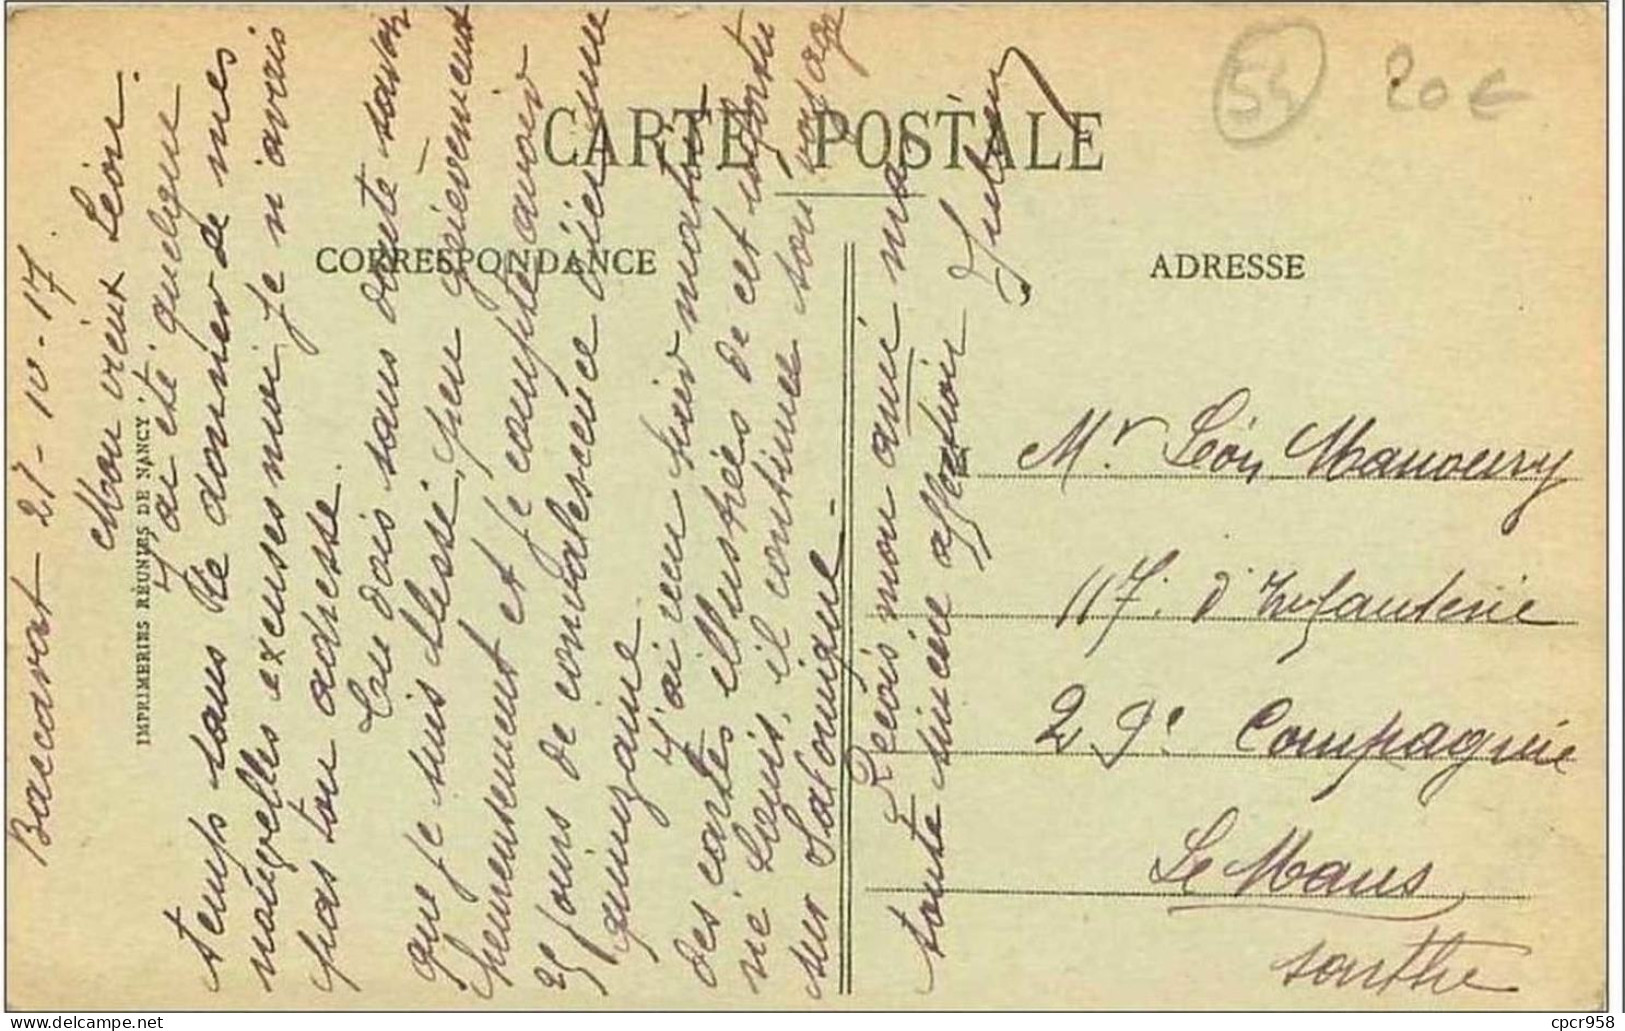 54
20€
CARTE POSTALE
CORRESPONDANCE
ADRESSE
IMPRIMERIES RÉUNIES DE NANCY
Baccarat 27-10-17
Mon vieux Léon.
J'ai été quelque
temps sans te donner de mes
nouvelles excuses moi je n'avais
pas ton adresse.
Tu dois sans doute savoir
que je suis blessé, peu grièvement
heureusement et je compte avoir
25 jours de convalescence d'ici une
quinzaine
J'ai reçu hier matin
des cartes illustrées de cet
Louis, il continue son voyage
sur Salonique.
Reçois mon ami ma
toute sincère affection
Mr Léon Manoury
117. d'Infanterie
29e Compagnie
Le Mans
Sarthe
cpcr958